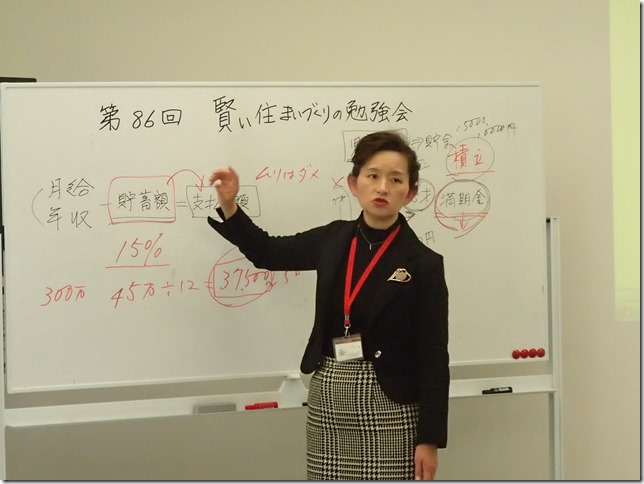 第86回 賢い住まいづくりの勉強会
⇒貯金
15000、
10000円
積立
月給
年収
- 貯蓄額 =
ムリはダメ
満期金
円
15%
300万 45万÷12=37,500